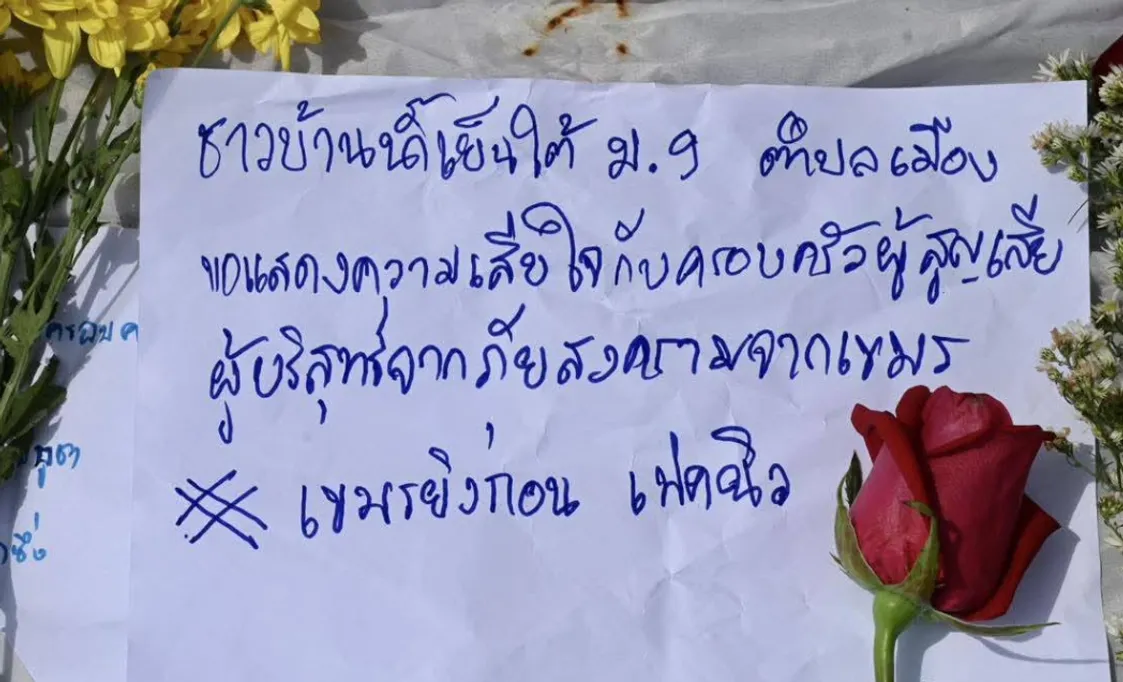 ชาวบ้านน้ำเย็นใต้ ม.9 ตำบลเมือง
ขอแสดงความเสียใจกับครอบครัวผู้สูญเสีย
ผู้บริสุทธิ์จากภัยสงครามจากเขมร
เขมรยิงก่อน เฟคนิว
ครอบค